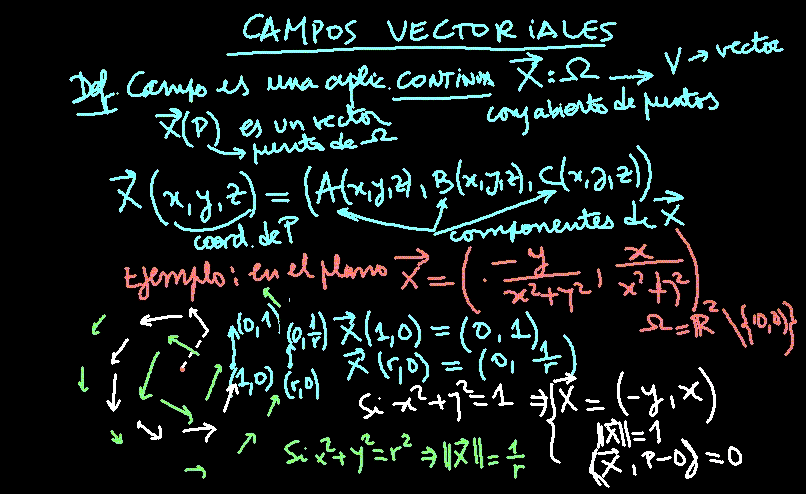 CAMPOS VECTORIALES
Def. Campo es una aplic. CONTINUA X⃗: Ω → V → vector
conj abierto de puntos
X⃗(P) es un vector
punto de Ω
X⃗(x,y,z) = (A(x,y,z), B(x,y,z), C(x,y,z))
coord. de P componentes de X⃗
Ejemplo: en el plano X⃗ = (-y/(x²+y²), x/(x²+y²))
Ω = ℝ² \ {(0,0)}
(0,1) (0,1/r) X⃗(1,0) = (0,1)
(1,0) (r,0) X⃗(r,0) = (0, 1/r)
Si x²+y²=1 ⇒ { X⃗ = (-y, x)
‖X⃗‖=1
(X⃗, P-O) = 0
Si x²+y²=r² ⇒ ‖X⃗‖ = 1/r